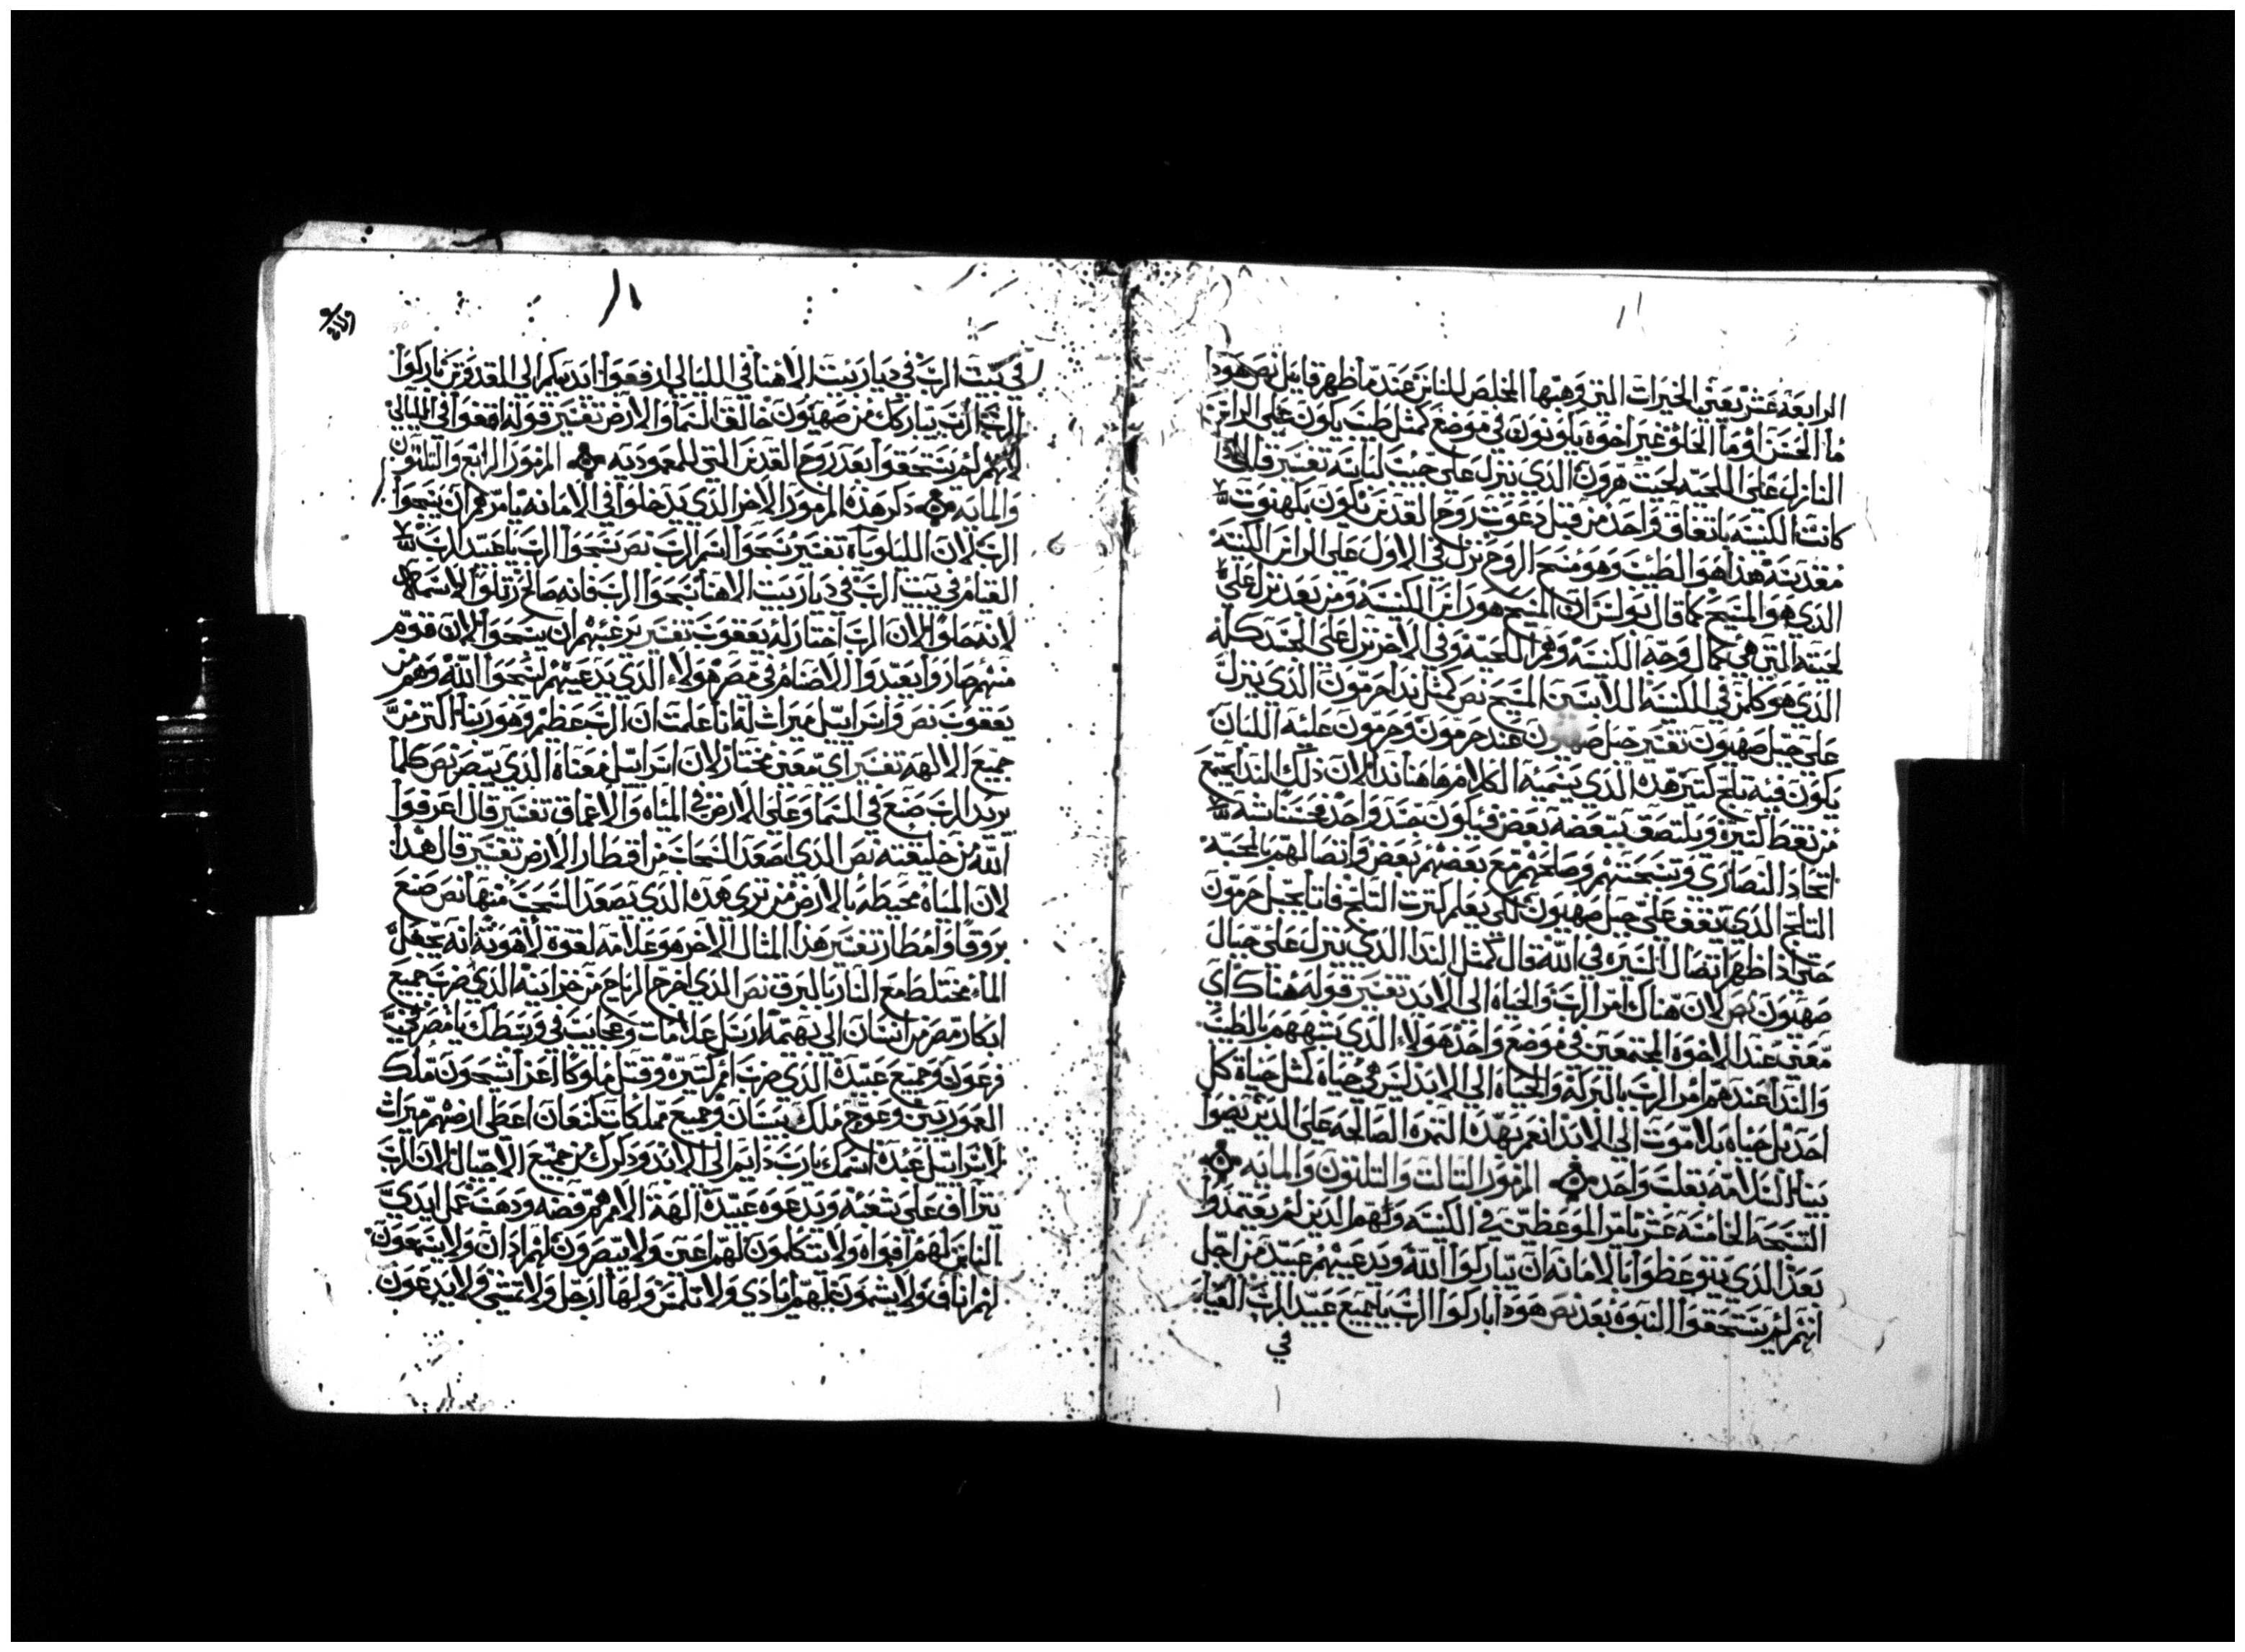 الرابعه عشر يعني الخيرات التي وهبها المخلص للناس عند ما ظهر قايل نص هودا
ما الحسن او ما الحلو غير اخوه يكونون في موضع كمثل طيب يكون علي الراس
النازل علي اللحيه لحيت هرون الذي ينزل علي جيب لباسه تفسير
كانت الكنيسه باتفاق واحد من قبل دعوت روح القدس يكون بكهنوت
مقدسه هذا هو الطيب وهو مسح الروح نزل في الاول علي الراس الكنيسه
الذي هو المسيح كما قال بولس ان المسيح هو راس الكنيسه ومن بعد نزل علي
لحيته التي هي كمال وجه الكنيسه وهم اللحيه وفي الاخر نزل علي الجسد كله
الذي هو كلمن في الكنيسه اللابسين المسيح نص كمثل ندا حرمون الذي ينزل
علي جبل صهيون تفسير جبل صهيون عند حرمون وحرمون عليه اللبنان
يكون فيه تلج كتير هذه الذي يسميه الكلام هاهنا ندا لان ذلك الندا يجتمع
من نقط كتيره ويلتصق ببعضه بعض فيكون جسد واحد
اتحاد النصاري وتسبحتهم وصلحهم مع بعضهم بعض واتصالهم بالمحبه
التلج الذي يقف علي جبل صهيون لكي يعلم كترت التلج فاتا بجبل حرمون
حتي اذا ظهر اتصال السيره في الله قال كمثل الندا الذي ينزل علي جبال
صهيون نص لان هناك امر الرب والحياه الي الابد تفسير قوله هناك اي
معني عند الاخوه المجتمعين في موضع واحد هولاء الذي شبههم بالطيب
والندا عندهم امر الرب بالبركه والحياه الي الابد ليس هي حياه كمثل حياة كل
احد بل حياه بلا موت الي الابد انعم بهذه التمره الصالحه علي الدين
بينا السلامه بقلب واحد المزمور التالت والتلتون والمايه
التسبحه الخامسه عشر يامر الموعظين في الكنيسه وانهم الدين لم يعتمدوا
بعد الذي يتوعظوا بالامانه ان يباركوا الله ويدعيهم عبيد من اجل
انهم لم يستحقوا النبوه بعد نص هودا باركوا الرب يا جميع عبيد الرب القيام
في
في بيت الرب في ديار بيت الاهنا في الليالي ارفعوا ايديكم الي القدوس باركوا
الرب الرب يباركك من صهيون خالق السما والارض تفسير قوله ارفعوا في الليالي
لانهم لم يستحقوا بعد روح القدس التي للمعموديه المزمور الرابع والتلتون
والمايه ذكر هذه المزمور الاخر الذي يدخلوا في الامانه يامرهم ان يسبحوا
الرب لان الليلويا تفسير سبحوا اسم الرب نص سبحوا الرب يا عبيد الرب
القيام في بيت الرب في ديار بيت الاهنا سبحوا الرب فانه صالح رتلوا لاسمه
لانه حلو لان الرب اختار له يعقوب تفسير يرغبهم ان يسبحوا لان قوم
منهم صاروا يعبدوا الاصنام في مصر هولاء الذي يدعيهم ليسبحوا الله وهم من
يعقوب نص واسراييل ميراث له انا علمت ان الرب عظيم وهو ربنا اكتر من
جميع الالهه تفسير اي معني مختار لان اسراييل معناه الذي يبصر نص كلما
يريد الرب صنع في السما وعلي الارض في المياه والاعماق تفسير قال اعرفوا
الله من خليقته نص الذي اصعد السحاب من اقطار الارض تفسير قال هذا
لان المياه محيطه بالارض من تري هذه الذي يصعد السحب منها نص صنع
بروقا وامطار تفسير هذا المثال الاخر هو علامه لقوة لاهوته انه يجعل
الماء مختلط مع النار بالبرق نص الذي اخرج الرياح من خزاينه الذي ضرب جميع
ابكار مصر من انسان الي بهيمه ارسل علامات وعجايب في وسطك يا مصر في
فرعون وجميع عبيده الذي ضرب امم كتيره وقتل ملوكا اعزا سيحون ملك
العموريين وعوج ملك بيسان وجميع مملكات كنعان اعطي ارضهم ميراث
لاسراييل عبده اسمك يارب دايم الي الابد وذكرك من جيل الاجيال لان الرب
يتراف علي شعبه ويدعوه عبيده الهة الامم فضه ودهب عمل ايدي
الناس لهم افواه ولا يتكلمون لهم اعين ولا يبصرون لهم اذان ولا يسمعون
لهم اناف ولا يشمون لهم ايادي ولا تلمس ولها ارجل ولا تمشي ولا يدعون